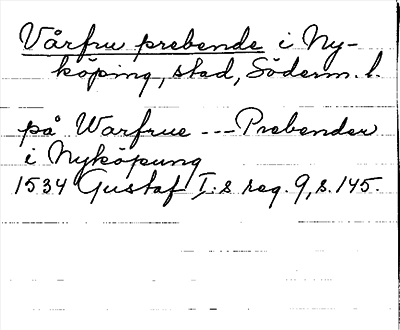 Vårfru prebende i Ny-
köping, stad, Söderm. l.
på Warfrue --- Prebender
i Nyköpung
1534 Gustaf I:s reg. 9, s. 145.